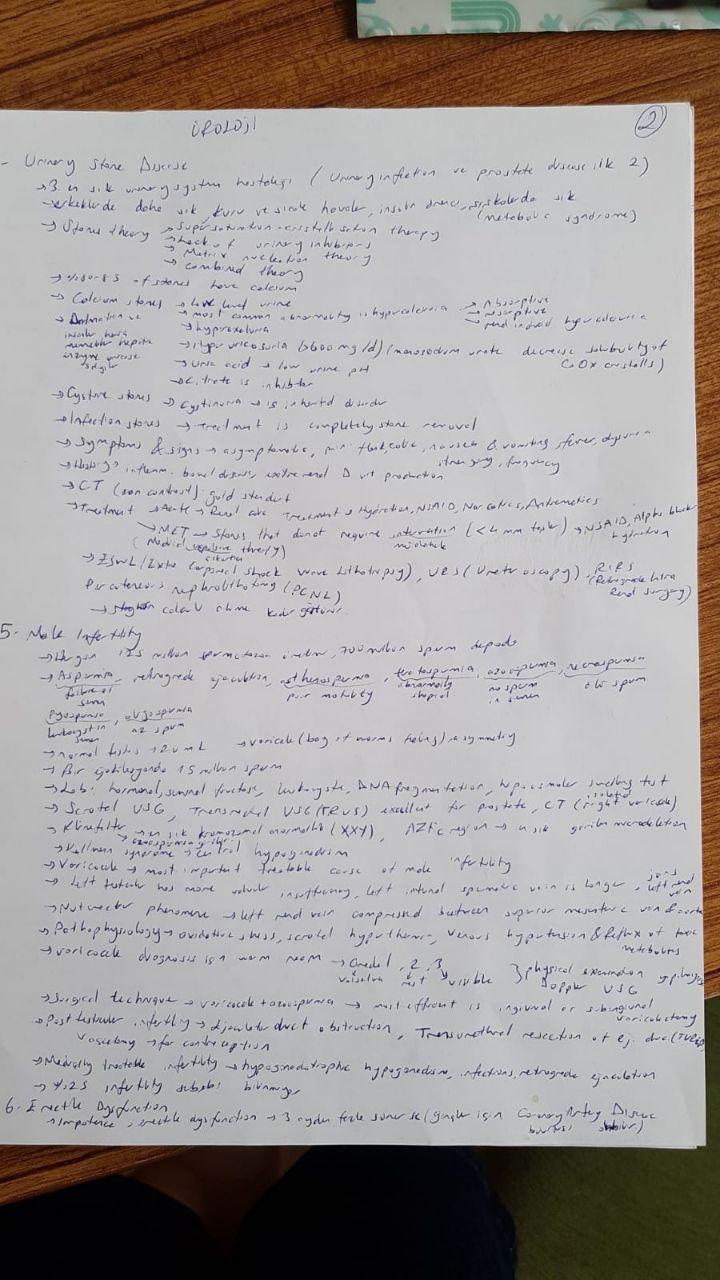 ÜROLOJİ
2
- Urinary Stone Disease
→ 3. en sık urinary system hastalığı (Urinary infection ve prostate disease ilk 2)
→ erkeklerde daha sık, kuru ve sıcak havalar, insulin direnci, şişkolarda sık
(metabolic syndrome)
→ Stones theory → Supersaturation - cristallisation therapy
→ Lack of urinary inhibitors
→ Matrix nucleation theory
→ combined theory
of stones have calcium
→ Calcium stones → low level urine
→ most common abnormality is hypercalciuria → Absorptive
→ resorptive
→ renal induced hypercalciuria
→ hyperoxaluria
→ Hyperuricosuria (>600 mg/d) (monosodium urate decrease solubility of
CaOx cristalls)
→ Uric acid → low urine pH
→ Citrate is inhibitor
→ Cystine stones → Cystinuria → is inherited disorder
→ Infection stones → Treatment is completely stone removal
→ Symptoms & signs → asymptomatic, colic, nausea & vomiting, fever, dysuria
straining, frequency
inflamm. bowel disease, extrarenal D vit production
→ CT (non contrast) gold standart
→ Treatment → Acute → Renal colic Treatment → Hydration, NSAID, Narcotics, Antiemetics
→ MET → Stones that donot require intervention (<4 mm taşlar) → NSAID, Alpha blocker
(Medical expulsive therapy) müdahale hydration
→ ESWL (Extra Corporeal Shock Wave Lithotripsy), URS (Ureteroscopy), RIRS
Percutaneous nephrolithotomy (PCNL) (Retrograde Intra
Renal surgery)
5- Male Infertility
→ Hergün 125 million spermatozoa üretimi, 700 million sperm depodo
→ Aspermia, retrograde ejaculation, asthenospermia, teratospermia, azoospermia, necrospermia
failure of poor motility abnormality no sperm ölü sperm
semen shaped in semen
pyospermia, oligospermia
leukocyst in az sperm
semen
→ normal testis >20 mL → varicocele (bag of worms feeling) asymmetry
→ Bir ejakülasyonda 15 million sperm
→ Lab: hormonal, seminal fructose, leukocyte, DNA fragmentation, hypoosmolar swelling test
→ Scrotal USG, Transrectal USG (TRUS) excellent for prostate, CT (right varicocele)
isolated
→ Klinefelter → en sık kromozomal anormallik (XXY), AZFc region → en sık görülen microdeletion
→ Kallmann syndrome → central hypogonadism
→ Varicocele → most important treatable cause of male infertility
→ Left testicular has more valvular insufficiency, left internal spermatic vein is longer, joins
left renal
vein
→ Nutcracker phenomene → left renal vein compressed between superior mesenteric vein & aorta
→ Pathophysiology → oxidative stress, scrotal hyperthermia, venous hypertension & reflux of toxic
metabolites
→ Varicocele diagnosis is in warm room → Grade 1, 2, 3 } physical examination
valsalva rest visible Doppler USG
→ Surgical technique → varicocele + azoospermia → most efficient is inguinal or subinguinal
varicolectomy
→ Post testicular infertility → ejaculatory duct obstruction, Transurethral resection of ej. duct (TURED)
Vasectomy → for contraception
→ Medically treatable infertility → hypogonadotrophic hypogonadism, infections, retrograde ejaculation
→ %25 infertility sebebi bilinmiyor
6- Erectile Dysfunction
→ Impotence, erectile dysfunction → 3 aydan fazla sürerse (gençler için Coronary Artery Disease
olabilir)